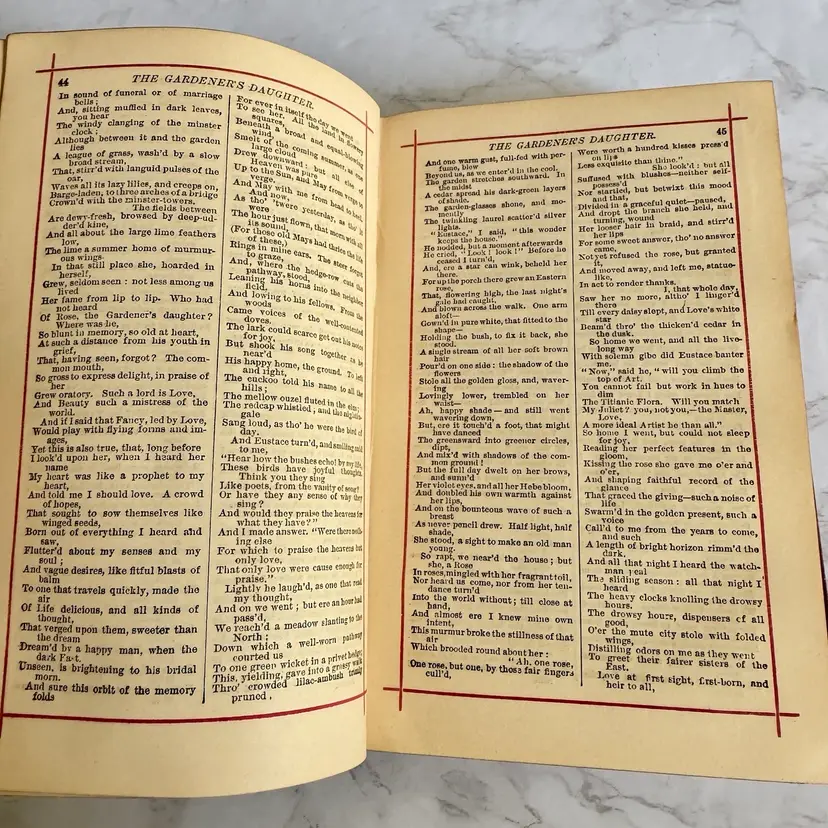 44
THE GARDENER'S DAUGHTER.
In sound of funeral or of marriage
bells;
And, sitting muffled in dark leaves,
you hear
The windy clanging of the minster
clock;
Although between it and the garden
lies
A league of grass, wash'd by a slow
broad stream,
That, stirr'd with languid pulses of the
oar,
Waves all its lazy lilies, and creeps on,
Barge-laden, to three arches of a bridge
Crown'd with the minster-towers.
The fields between
Are dewy-fresh, browsed by deep-ud-
der'd kine,
And all about the large lime feathers
low,
The lime a summer home of murmur-
ous wings.
In that still place she, hoarded in
herself,
Grew, seldom seen: not less among us
lived
Her fame from lip to lip. Who had
not heard
Of Rose, the Gardener's daughter?
Where was he,
So blunt in memory, so old at heart,
At such a distance from his youth in
grief,
That, having seen, forgot? The com-
mon mouth,
So gross to express delight, in praise of
her
Grew oratory. Such a lord is Love,
And Beauty such a mistress of the
world.
And if I said that Fancy, led by Love,
Would play with flying forms and im-
ages,
Yet this is also true, that, long before
I look'd upon her, when I heard her
name
My heart was like a prophet to my
heart,
And told me I should love. A crowd
of hopes,
That sought to sow themselves like
winged seeds,
Born out of everything I heard and
saw,
Flutter'd about my senses and my
soul;
And vague desires, like fitful blasts of
balm
To one that travels quickly, made the
air
Of Life delicious, and all kinds of
thought,
That verged upon them, sweeter than
the dream
Dream'd by a happy man, when the
dark East,
Unseen, is brightening to his bridal
morn.
And sure this orbit of the memory
folds
For ever in itself the day we went
To see her. All the land in flowery
squares,
Beneath a broad and equal-blowing
wind,
Smelt of the coming summer, as one
large cloud
Drew downward: but all else of
Heaven was pure
Up to the Sun, and May from verge to
verge,
And May with me from head to heel.
And now,
As tho' 'twere yesterday, as tho' it
were
The hour just flown, that morn with all
its sound,
(For those old Mays had thrice the life
of these,)
Rings in mine ears. The steer forgot
to graze,
And, where the hedge-row cuts the
pathway, stood,
Leaning his horns into the neighbor
field,
And lowing to his fellows. From the
woods
Came voices of the well-contented
doves.
The lark could scarce get out his notes
for joy,
But shook his song together as he
near'd
His happy home, the ground. To left
and right,
The cuckoo told his name to all the
hills;
The mellow ouzel fluted in the elm;
The redcap whistled; and the nightin-
gale
Sang loud, as tho' he were the bird of
day.
And Eustace turn'd, and smiling said
to me,
"Hear how the bushes echo! by my life,
These birds have joyful thoughts.
Think you they sing
Like poets, from the vanity of song?
Or have they any sense of why they
sing?
And would they praise the heavens for
what they have?"
And I made answer. "Were there noth-
ing else
For which to praise the heavens but
only love,
That only love were cause enough for
praise."
Lightly he laugh'd, as one that read
my thought,
And on we went; but ere an hour had
pass'd,
We reach'd a meadow slanting to the
North:
Down which a well-worn pathway
courted us
To one green wicket in a privet hedge;
This, yielding, gave into a grassy walk
Thro' crowded lilac-ambush trimly
pruned,
THE GARDENER'S DAUGHTER.
45
And one warm gust, full-fed with per-
fume, blew
Beyond us, as we enter'd in the cool.
The garden stretches southward. In
the midst
A cedar spread his dark-green layers
of shade.
The garden-glasses shone, and mo-
mently
The twinkling laurel scatter'd silver
lights.
"Eustace," I said, "this wonder
keeps the house."
He nodded, but a moment afterwards
He cried, "Look! look!" Before he
ceased I turn'd,
And, ere a star can wink, beheld her
there.
For up the porch there grew an Eastern
rose,
That, flowering high, the last night's
gale had caught,
And blown across the walk. One arm
aloft—
Gown'd in pure white, that fitted to the
shape—
Holding the bush, to fix it back, she
stood.
A single stream of all her soft brown
hair
Pour'd on one side: the shadow of the
flowers
Stole all the golden gloss, and, waver-
ing
Lovingly lower, trembled on her
waist—
Ah, happy shade—and still went
wavering down,
But, ere it touch'd a foot, that might
have danced
The greensward into greener circles,
dipt,
And mix'd with shadows of the com-
mon ground!
But the full day dwelt on her brows,
and sunn'd
Her violet eyes, and all her Hebe bloom,
And doubled his own warmth against
her lips,
And on the bounteous wave of such a
breast
As never pencil drew. Half light, half
shade,
She stood, a sight to make an old man
young.
So rapt, we near'd the house; but
she, a Rose
In roses, mingled with her fragrant toil,
Nor heard us come, nor from her ten-
dance turn'd
Into the world without; till close at
hand,
And almost ere I knew mine own
intent,
This murmur broke the stillness of that
air
Which brooded round about her:
"Ah, one rose,
One rose, but one, by those fair fingers
cull'd,
Were worth a hundred kisses press'd
on lips
Less exquisite than thine."
She look'd: but all
Suffused with blushes—neither self-
possess'd
Nor startled, but betwixt this mood
and that,
Divided in a graceful quiet—paused,
And dropt the branch she held, and
turning, wound
Her looser hair in braid, and stirr'd
her lips
For some sweet answer, tho' no answer
came,
Not yet refused the rose, but granted
it,
And moved away, and left me, statue-
like,
In act to render thanks.
I, that whole day,
Saw her no more, altho' I linger'd
there
Till every daisy slept, and Love's white
star
Beam'd thro' the thicken'd cedar in
the dusk.
So home we went, and all the live-
long way
With solemn gibe did Eustace banter
me.
"Now," said he, "will you climb the
top of Art.
You cannot fail but work in hues to
dim
The Titianic Flora. Will you match
My Juliet? you, not you,—the Master,
Love,
A more ideal Artist he than all."
So home I went, but could not sleep
for joy,
Reading her perfect features in the
gloom,
Kissing the rose she gave me o'er and
o'er,
And shaping faithful record of the
glance
That graced the giving—such a noise of
life
Swarm'd in the golden present, such a
voice
Call'd to me from the years to come,
and such
A length of bright horizon rimm'd the
dark.
And all that night I heard the watch-
man peal
The sliding season: all that night I
heard
The heavy clocks knolling the drowsy
hours.
The drowsy hours, dispensers of all
good,
O'er the mute city stole with folded
wings,
Distilling odors on me as they went
To greet their fairer sisters of the
East.
Love at first sight, first-born, and
heir to all,